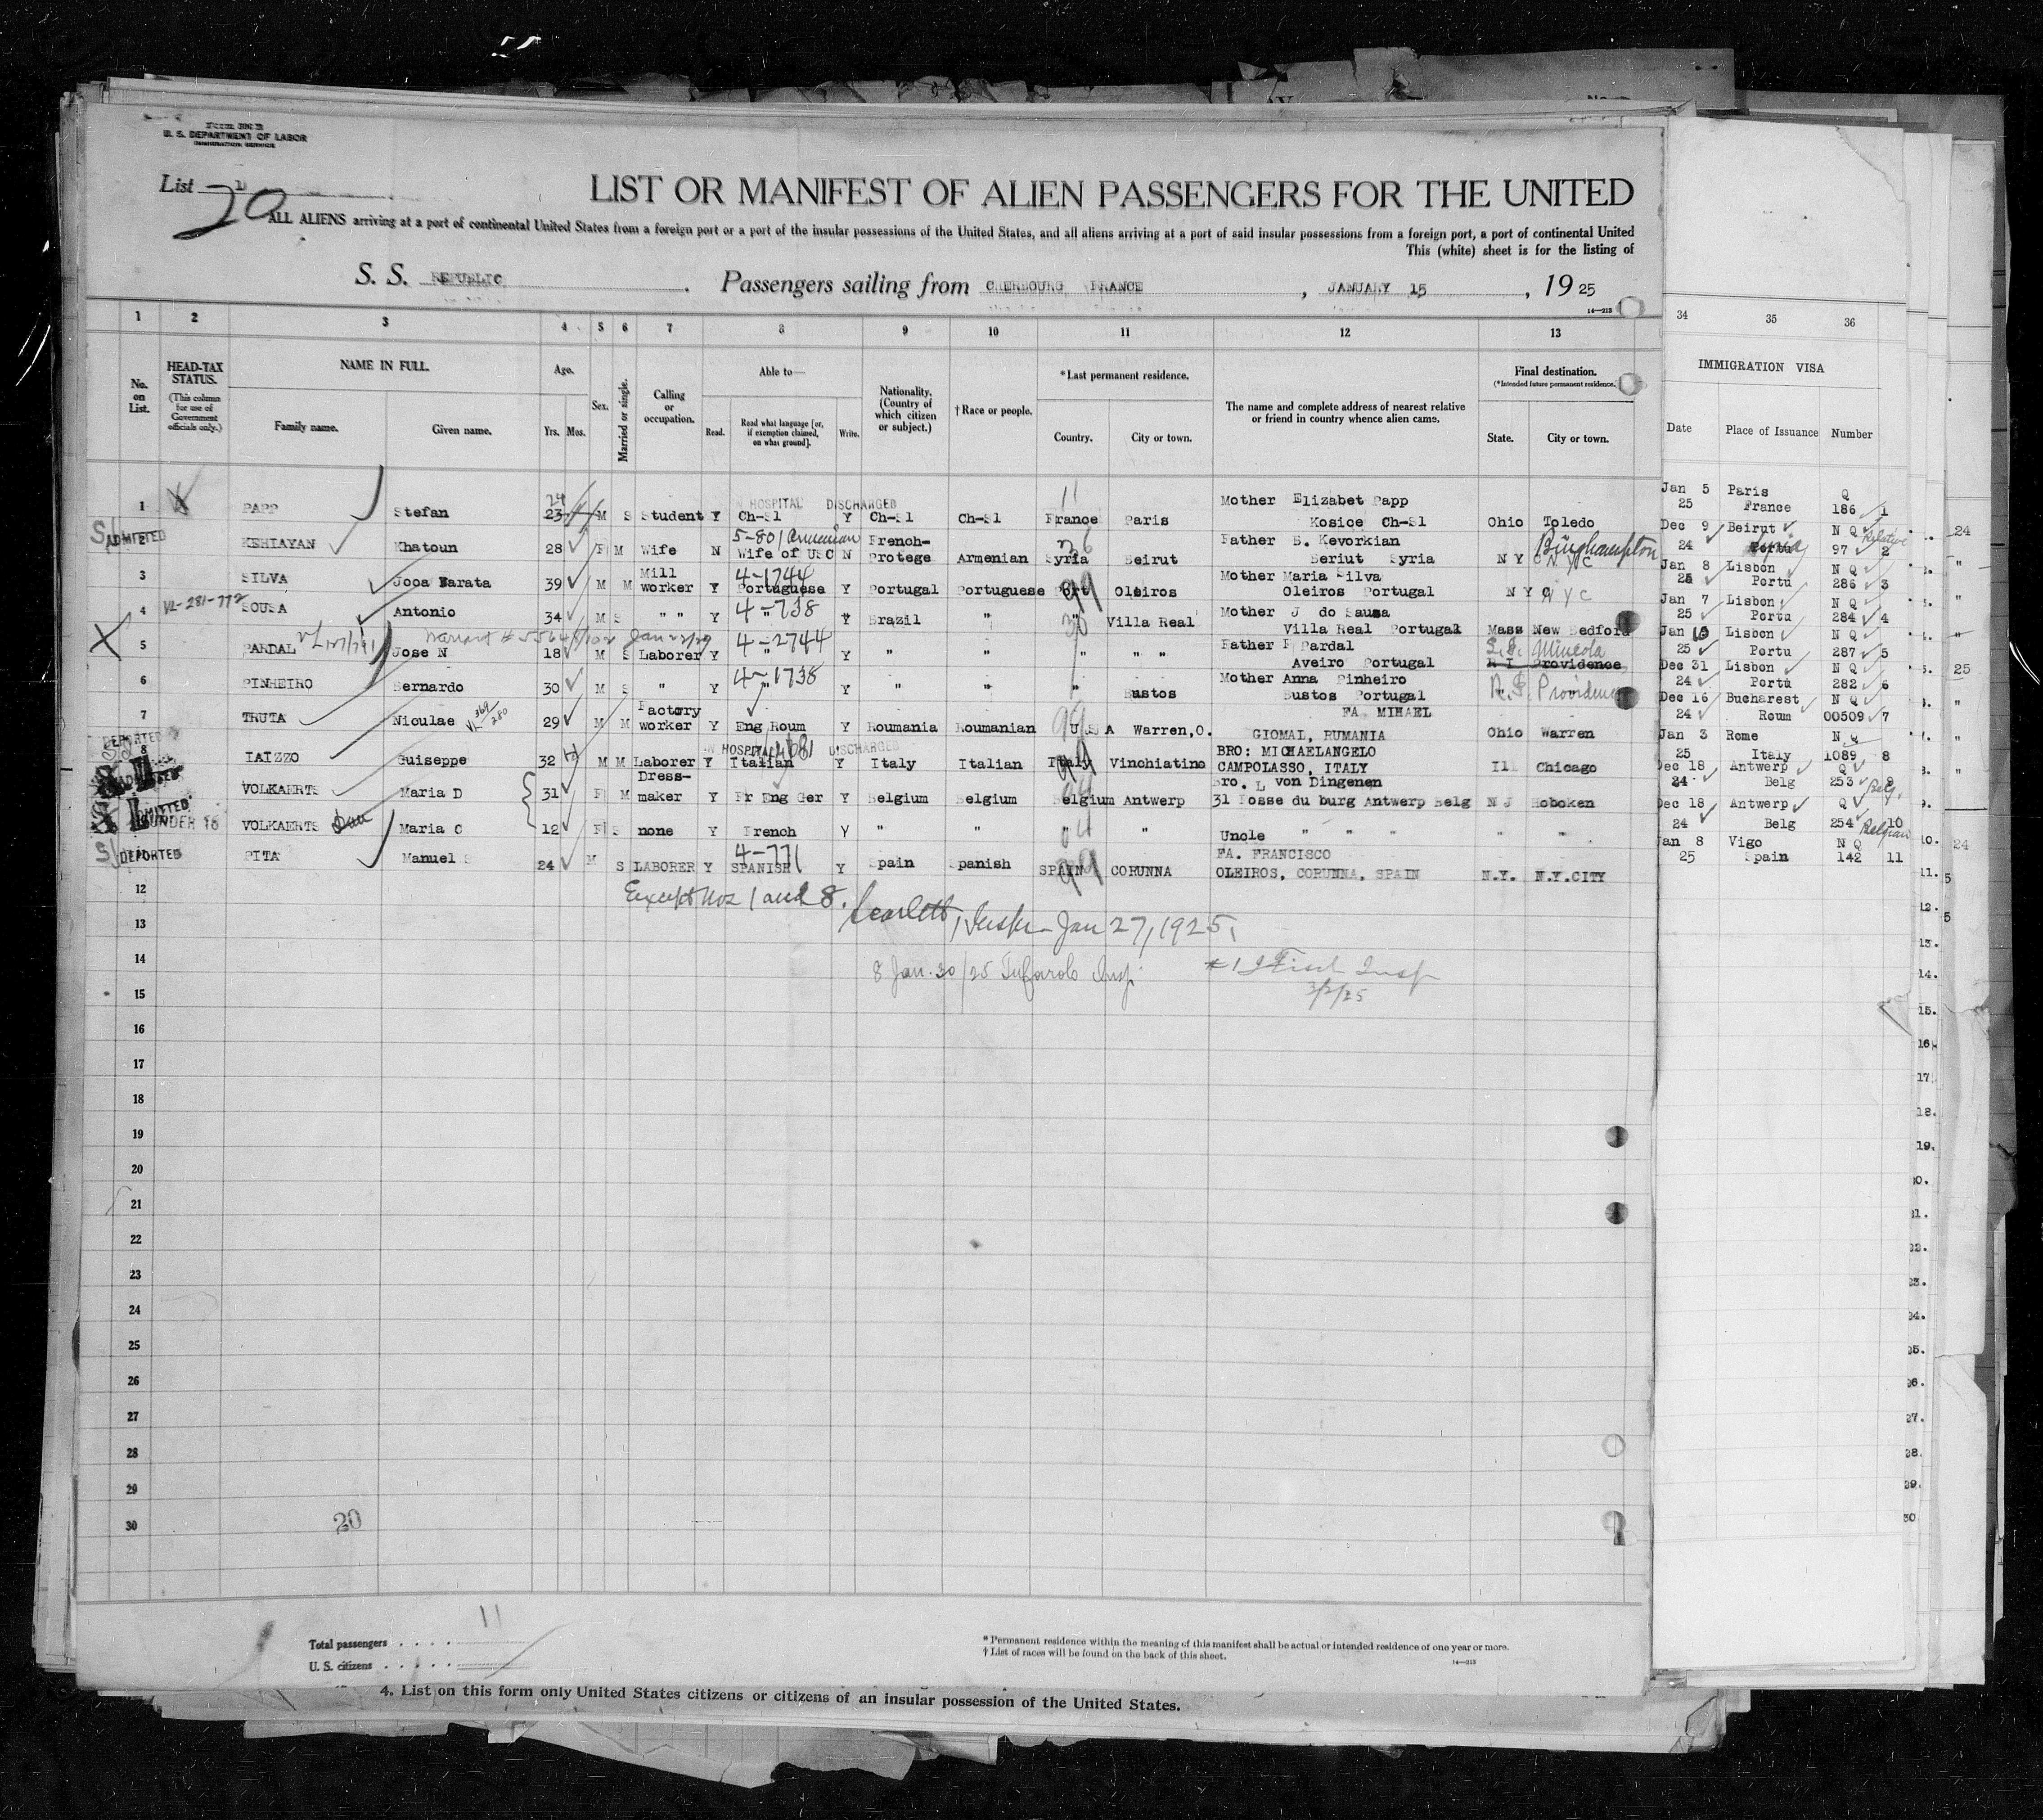 U. S. DEPARTMENT OF LABOR
IMMIGRATION SERVICE
List
20
LIST OR MANIFEST OF ALIEN PASSENGERS FOR THE UNITED
ALL ALIENS arriving at a port of continental United States from a foreign port or a port of the insular possessions of the United States, and all aliens arriving at a port of said insular possessions from a foreign port, a port of continental United
This (white) sheet is for the listing of
S. S. REPUBLIC . Passengers sailing from CHERBOURG FRANCE , JANUARY 15 , 19 25
14—213
1 2 3 4 5 6 7 8 9 10 11 12 13 34 35 36
No. on List. HEAD-TAX STATUS. (This column for use of Government officials only.) NAME IN FULL. Family name. Given name. Age. Yrs. Mos. Sex. Married or single. Calling or occupation. Able to— Read. Read what language [or, if exemption claimed, on what ground]. Write. Nationality. (Country of which citizen or subject.) † Race or people. *Last permanent residence. Country. City or town. The name and complete address of nearest relative or friend in country whence alien came. Final destination. (*Intended future permanent residence.) State. City or town. IMMIGRATION VISA Date Place of Issuance Number
IN HOSPITAL DISCHARGED
1 PAPP Stefan 23 24 M S Student Y Ch-Sl Y Ch-Sl Ch-Sl France Paris Mother Elizabet Papp Kosice Ch-Sl Ohio Toledo Jan 5 25 Paris France Q 186 1
ADMITTED
2 KEHIAYAN Khatoun 28 F M Wife N 5-801 Armenian Wife of USC N French-Protege Armenian Syria Beirut Father S. Kevorkian Beriut Syria N Y C N Y C Binghampton Dec 9 24 Beirut Syria N Q Relative 97 2
3 SILVA Jooa Barata 39 M M Mill worker Y 4-1744 Portuguese Y Portugal Portuguese Port Oleiros Mother Maria Silva Oleiros Portugal N Y C N Y C Jan 8 25 Lisbon Portu N Q 286 3
4 VL-281-772 SOUSA Antonio 34 M S " " Y 4-738 " Y Brazil " " Villa Real Mother J do Sausa Villa Real Portugal Mass New Bedford Jan 7 25 Lisbon Portu N Q 284 4
5 PARDAL Jose N 18 M S Laborer Y 4-2744 " Y " " " " " Father F Pardal Aveiro Portugal R I Providence Mineola Jan 10 25 Lisbon Portu N Q 287 5
6 PINHEIRO Bernardo 30 M S " Y 4-1738 " Y " " " Bustos Mother Anna Pinheiro Bustos Portugal R.I. Providence Dec 31 24 Lisbon Portu N Q 282 6
7 TRUTA Nicolae 29 M M Factory worker Y Eng Roum Y Roumania Roumanian U S A Warren,O. FA MIHAEL GIOMAL, RUMANIA Ohio Warren Dec 16 24 Bucharest Roum N Q 00509 7
DEPORTED
IN HOSPITAL DISCHARGED
8 IAIZZO Guiseppe 32 M M Laborer Y Italian Y Italy Italian Italy Vinchiatino BRO: MICHAELANGELO CAMPOLASSO, ITALY Ill Chicago Jan 3 25 Rome Italy N Q 1089 8
VOLKAERTS Maria D 31 F M Dress-maker Y Fr Eng Ger Y Belgium Belgium Belgium Antwerp Bro. L von Dingenen 31 Fosse du burg Antwerp Belg N J Hoboken Dec 18 24 Antwerp Belg Q 253 9 Belg.
ADMITTED.
UNDER 16
VOLKAERTS Maria C 12 F S none Y French Y " " " " Uncle " " " " " Dec 18 24 Antwerp Belg Q 254 10 Belgian
DEPORTED
PITA Manuel S 24 M S LABORER Y 4-771 SPANISH Y Spain Spanish SPAIN CORUNNA FA. FRANCISCO OLEIROS, CORUNNA, SPAIN N.Y. N.Y.CITY Jan 8 25 Vigo Spain N Q 142 11
12
Except Nos 1 and 8.
13
Jan 27, 1925.
14
8 Jan. 30/25 Insp. #1 Insp
3/2/25
15
16
17
18
19
20
21
22
23
24
25
26
27
28
29
30
20
Total passengers . . . . . 11
U. S. citizens . . . . .
* Permanent residence within the meaning of this manifest shall be actual or intended residence of one year or more.
† List of races will be found on the back of this sheet.
14—213
4. List on this form only United States citizens or citizens of an insular possession of the United States.